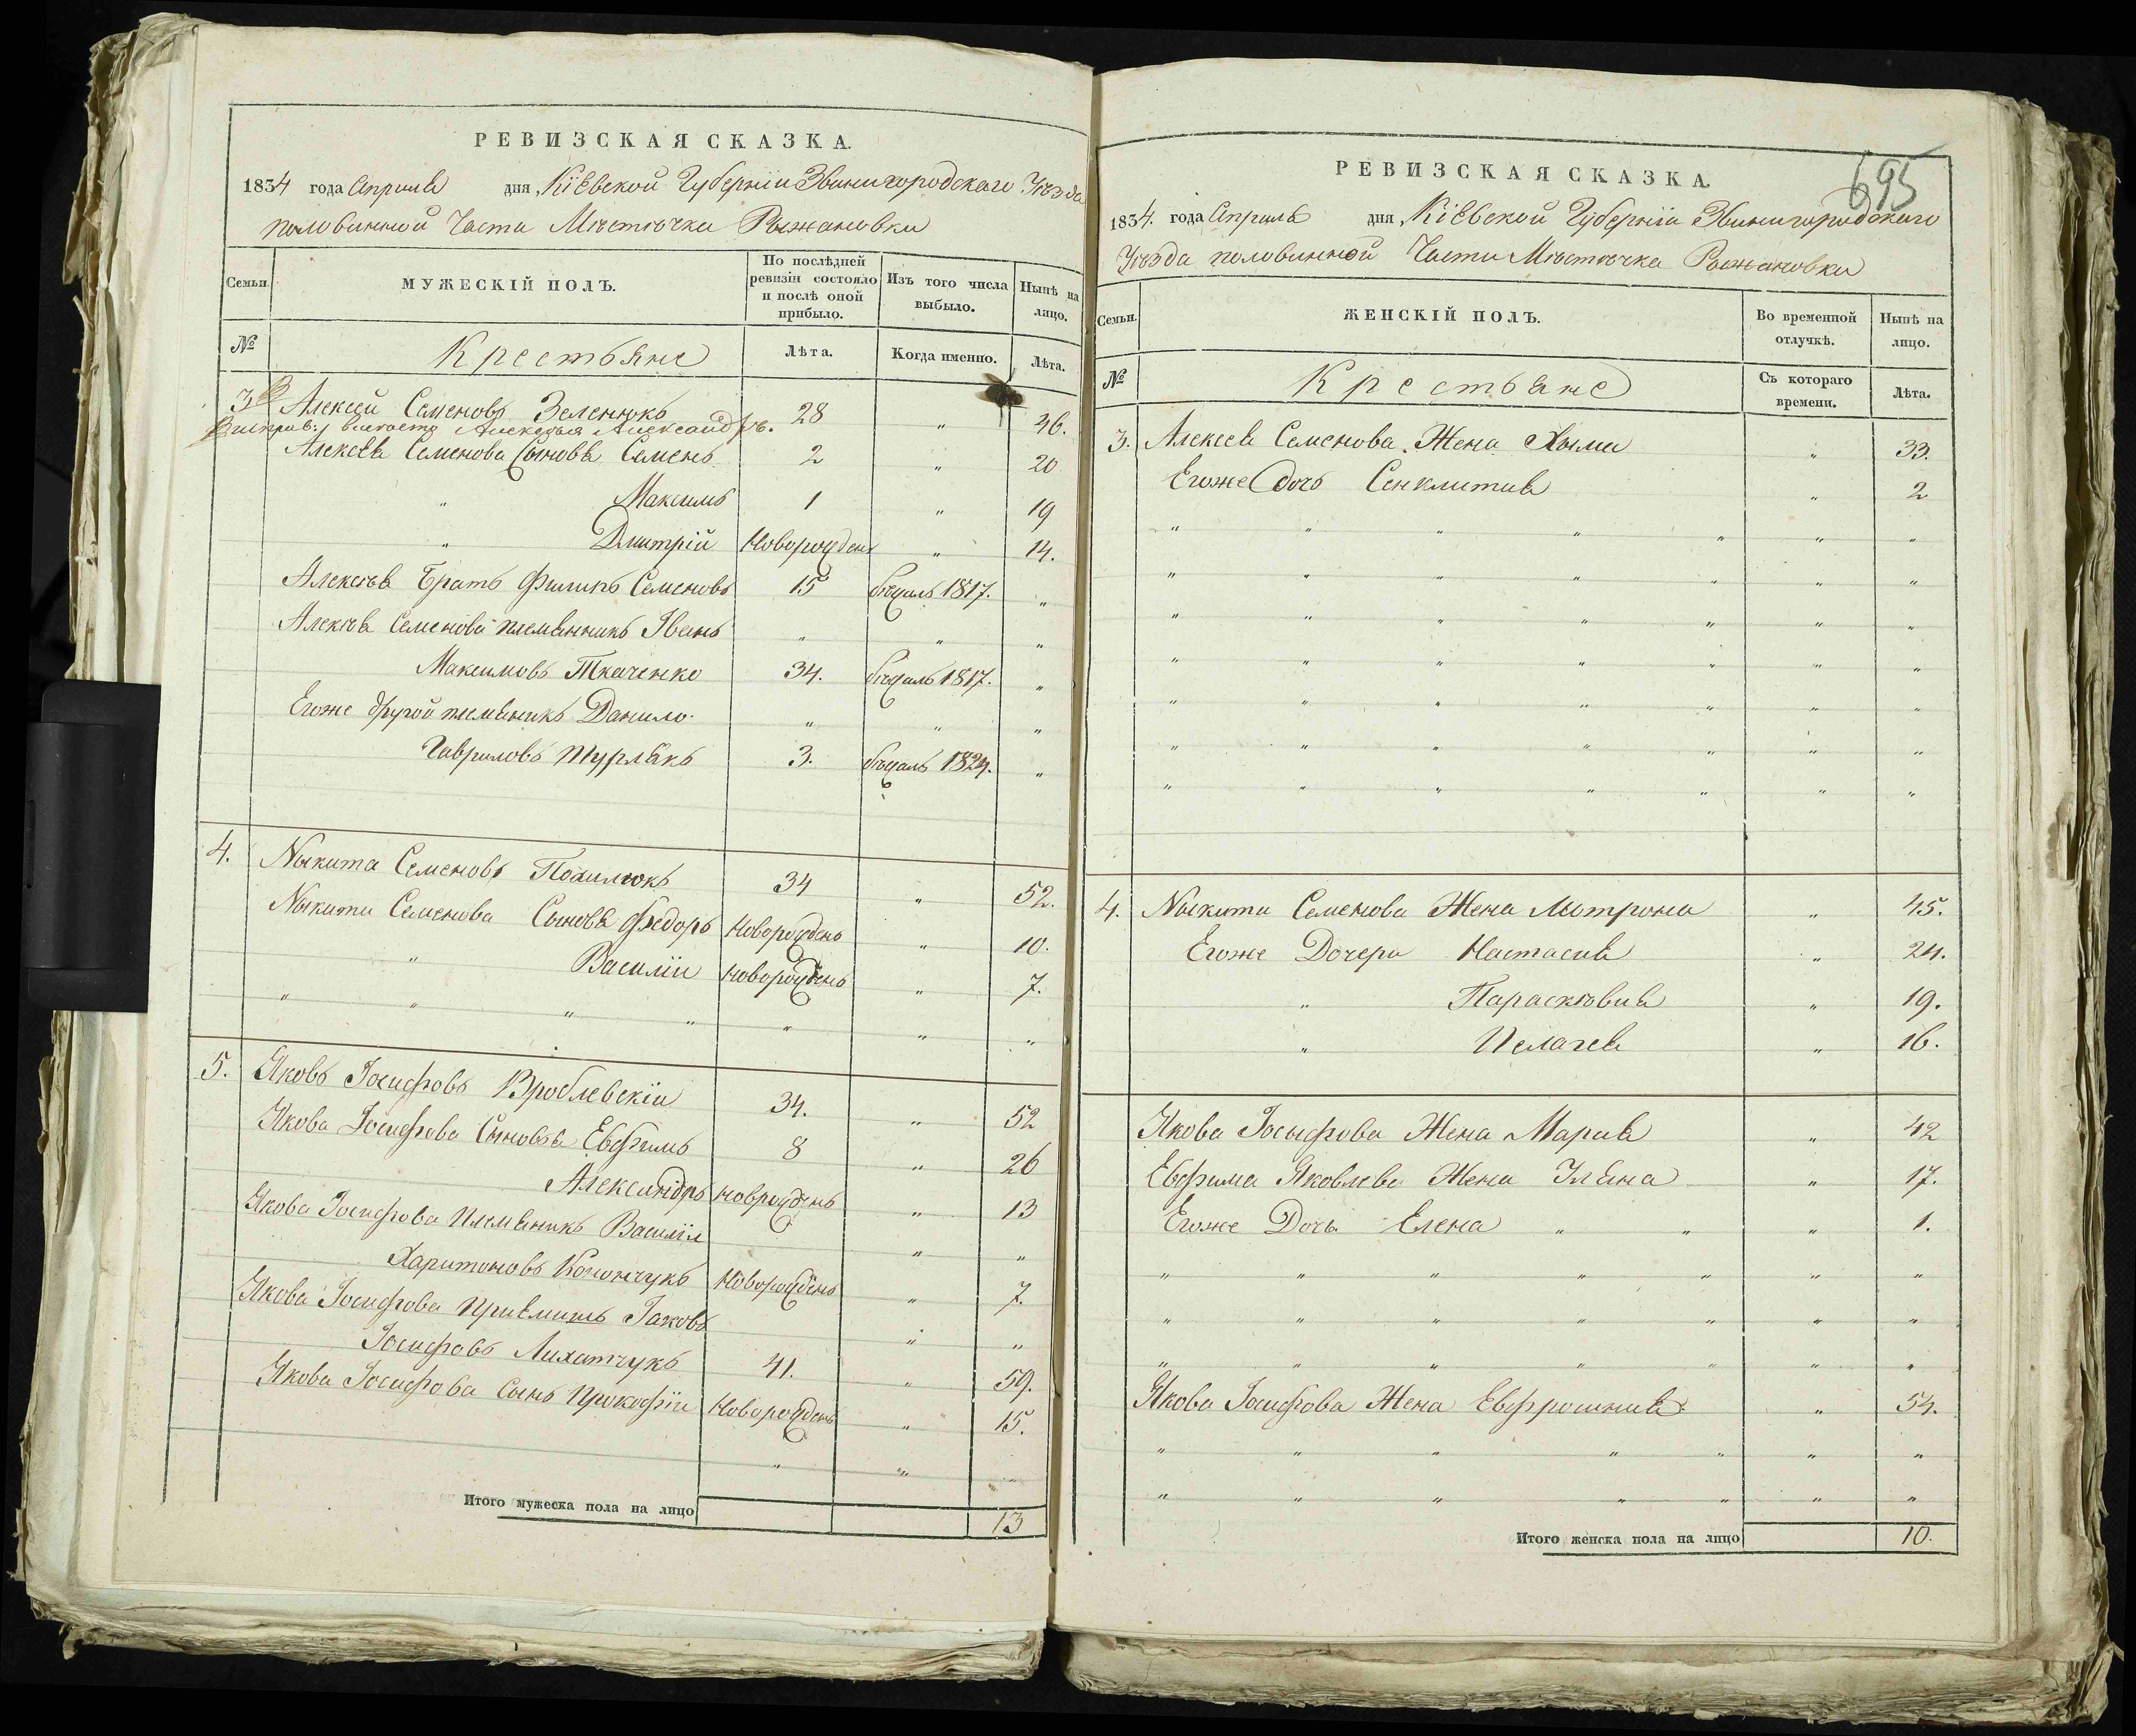 РЕВИЗСКАЯ СКАЗКА.
1834 года Априля дня, Кіевской Губерніи Звинигородскаго Уѣзда
половинной Части Мѣстѣчка Рыжановки
Семьи.
МУЖЕСКІЙ ПОЛЪ.
По послѣдней ревизіи состояло и послѣ оной прибыло.
Изъ того числа выбыло.
Нынѣ на лицо.
№
Крестьяне
Лѣта.
Когда именно.
Лѣта.
3 Алексей Семеновъ Зеленюкъ 28 „ 46.
Александръ.
Алексѣя Семенова Сыновя Семенъ 2 „ 20
„ Максимъ 1 „ 19
„ Дмитрій Новорожден „ 14.
Алексѣя Братъ Филипъ Семеновъ 15 бѣжалъ 1817. „
Алексѣя Семенова племянникъ Іванъ „ „ „
Максимовъ Ткаченко 34. бѣжалъ 1817. „
Егоже другой племяникъ Данило „ „ „
Гавриловъ Турлякъ 3. бѣжалъ 1824. „
4. Никита Семеновъ 34 „ 52.
Никиты Семенова Сыновя Федоръ Новорожденъ „ 10.
„ Василіи новорожденъ „ 7.
„ „ „ „ „ „ „
5. Яковъ Іосифовъ Вроблевскіи 34. „ 52
Якова Іосифова Сыновья Евфимъ 8 „ 26
Александръ новрожденъ „ 13
Якова Іосифова Племяникъ Василіи „ „
Харитоновъ Конончукъ Новорожденъ „ 7.
Якова Іосифова Приемишъ Іаковъ „ „
Іосифовъ Лихатчукъ 41. „ 59.
Якова Іосифова Сынъ Прокофіи Новорожденъ „ 15.
„ „ „
Итого мужеска пола на лицо 13
695
РЕВИЗСКАЯ СКАЗКА.
1834. года Априля дня, Кіевской Губерніи Звинигородскаго
Уѣзда половинной Части Мѣстѣчка Рыжановки
Семьи.
ЖЕНСКІЙ ПОЛЪ.
Во временной отлучкѣ.
Нынѣ на лицо.
№
Крестьяне
Съ котораго времени.
Лѣта.
3. Алексея Семенова Жена Хыма „ 33.
Егоже дочь Сенклития „ 2
„ „ „ „ „ „ „
„ „ „ „ „ „ „
„ „ „ „ „ „ „
„ „ „ „ „ „ „
„ „ „ „ „ „ „
„ „ „ „ „ „ „
„ „ „ „ „ „ „
4. Никиты Семенова Жена Мотрона „ 45.
Егоже Дочери Настасия „ 24.
„ Параскѣвия „ 19.
„ Пелагея „ 16.
Якова Іосыфова Жена Мария „ 42
Евфима Яковлева Жена Іляна „ 17.
Егоже Дочь Елена „ „ „ 1.
„ „ „ „ „ „ „
„ „ „ „ „ „ „
„ „ „ „ „ „ „
Якова Іосифова Жена Евфросиния „ 54.
„ „ „ „ „ „ „
„ „ „ „ „ „ „
Итого женска пола на лицо 10.